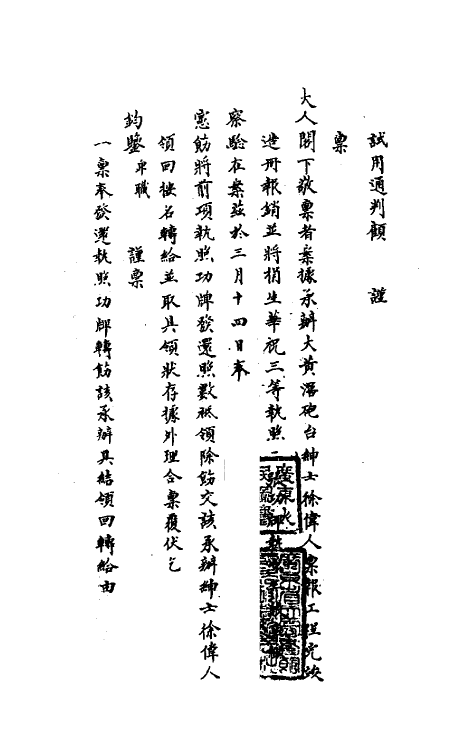 試用通判顧 謹
稟
大人閣下敬稟者案據承辦大黃滘砲台紳士徐偉人稟報工程完竣
造冊報銷並將捐生華祝三等執照二
察驗在案茲於三月十四日奉
憲飭將前項執照功牌發還照數祗領除飭交該承辦紳士徐偉人
領回按名轉給並取具領狀存據外理合稟覆伏乞
鈞鑒卑職 謹稟
一稟奉發還執照功牌轉飭該承辦具結領回轉給由